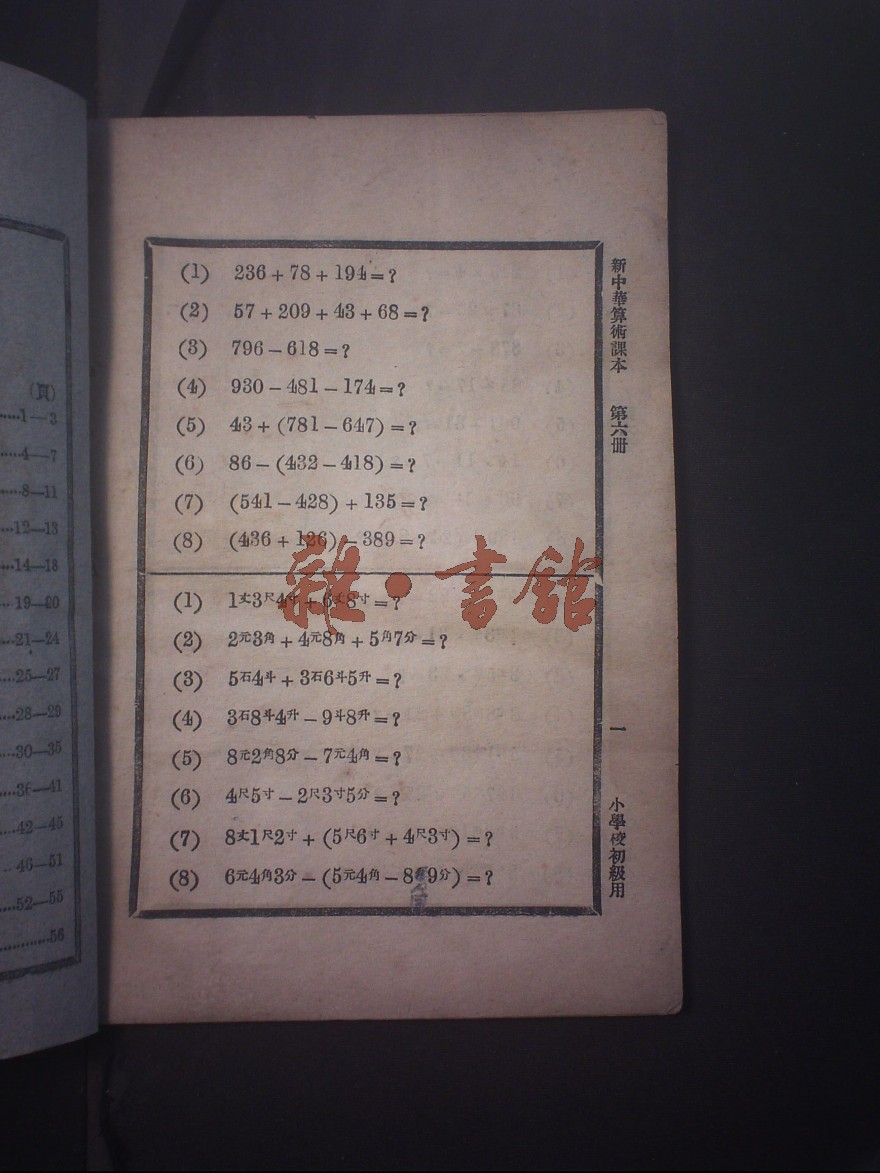 (頁)
……1—3
……4—7
……8—11
……12—13
……14—18
……19—20
……21—24
……25—27
……28—29
……30—35
……36—41
……42—45
……46—51
……52—55
……56
(1) 236+78+194=?
(2) 57+209+43+68=?
(3) 796-618=?
(4) 930-481-174=?
(5) 43+(781-647)=?
(6) 86-(432-418)=?
(7) (541-428)+135=?
(8) (436+126)-389=?
雜·書館
(1) 1丈3尺4寸+6丈8寸=?
(2) 2元3角+4元8角+5角7分=?
(3) 5石4斗+3石6斗5升=?
(4) 3石8斗4升-9斗8升=?
(5) 8元2角8分-7元4角=?
(6) 4尺5寸-2尺3寸5分=?
(7) 8丈1尺2寸+(5尺6寸+4尺3寸)=?
(8) 6元4角3分-(5元4角-8角9分)=?
新中華算術課本 第六冊
一
小學校初級用